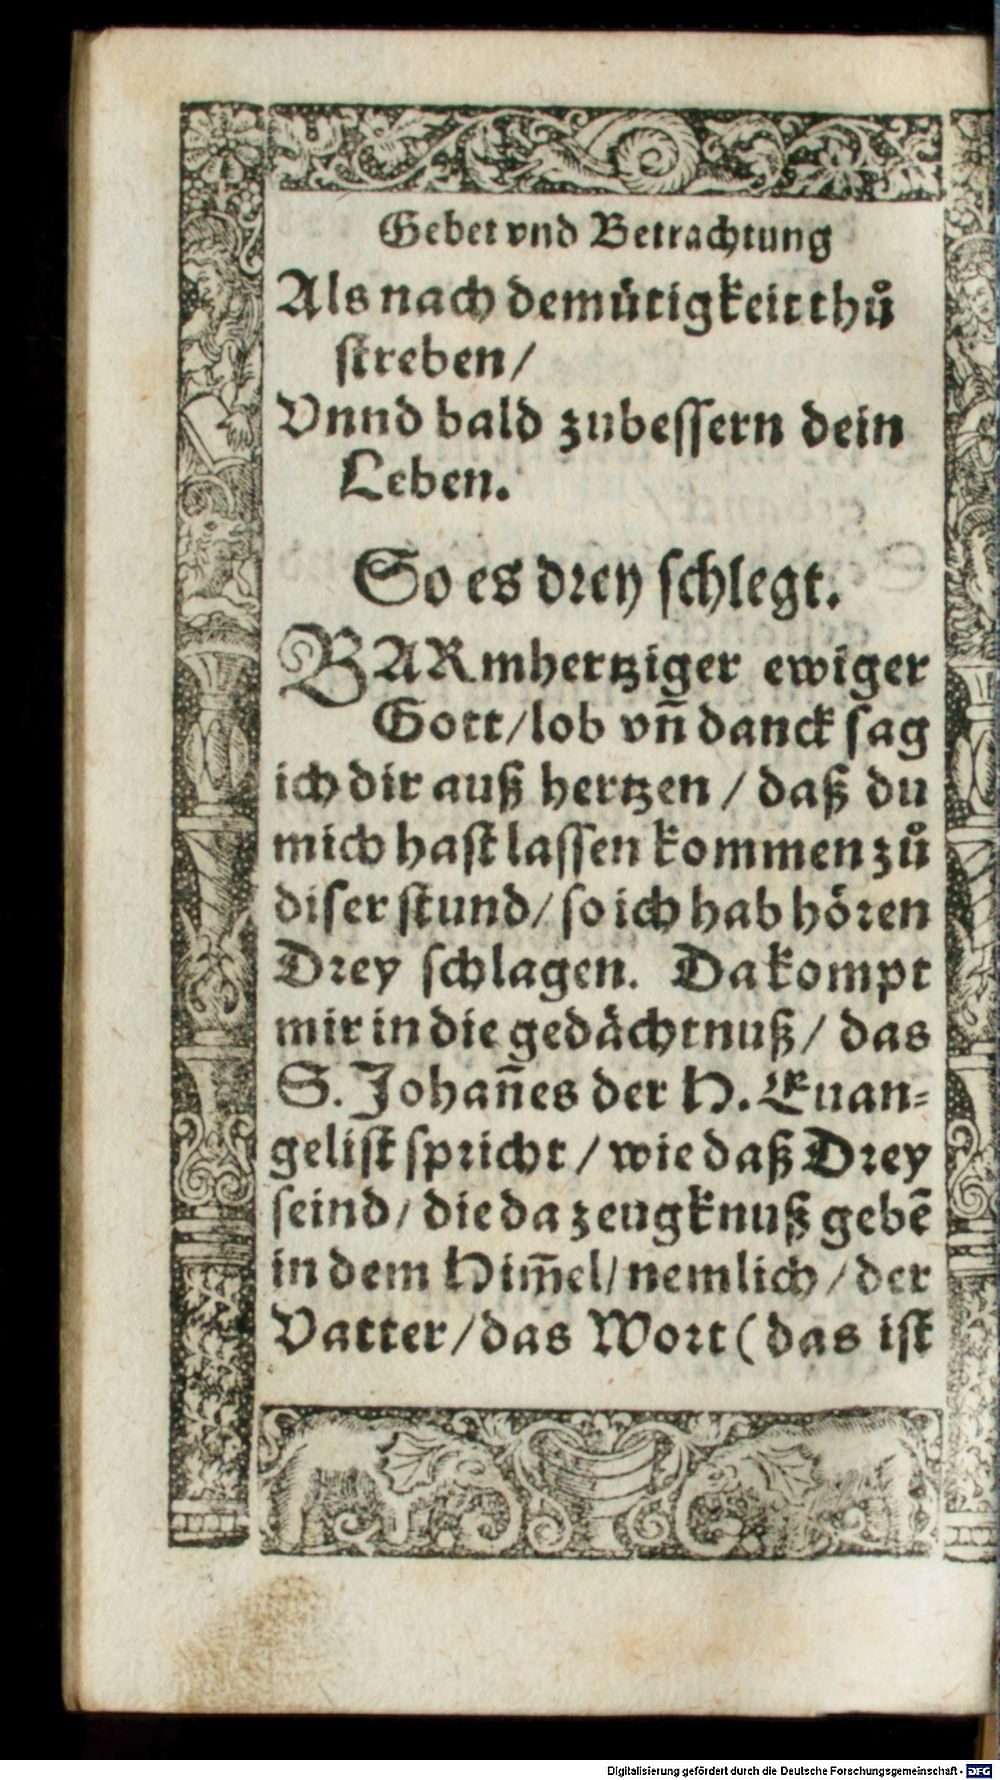 Gebet vnd Betrachtung
Als nach demütigkeit thů
streben/
Vnnd bald zubessern dein
Leben.
So es drey schlegt.
BARmhertziger ewiger
Gott/lob vn̄ danck sag
ich dir auß hertzen / daß du
mich hast lassen kommen zů
diser stund/ so ich hab hören
Drey schlagen. Da kompt
mir in die gedächtnuß/ das
S. Johan̄es der H. Euan⸗
gelist spricht / wie daß Drey
seind/ die da zeugknuß gebē
in dem Him̄el/ nemlich / der
Vatter/das Wort (das ist
Digitalisierung gefördert durch die Deutsche Forschungsgemeinschaft - DFG